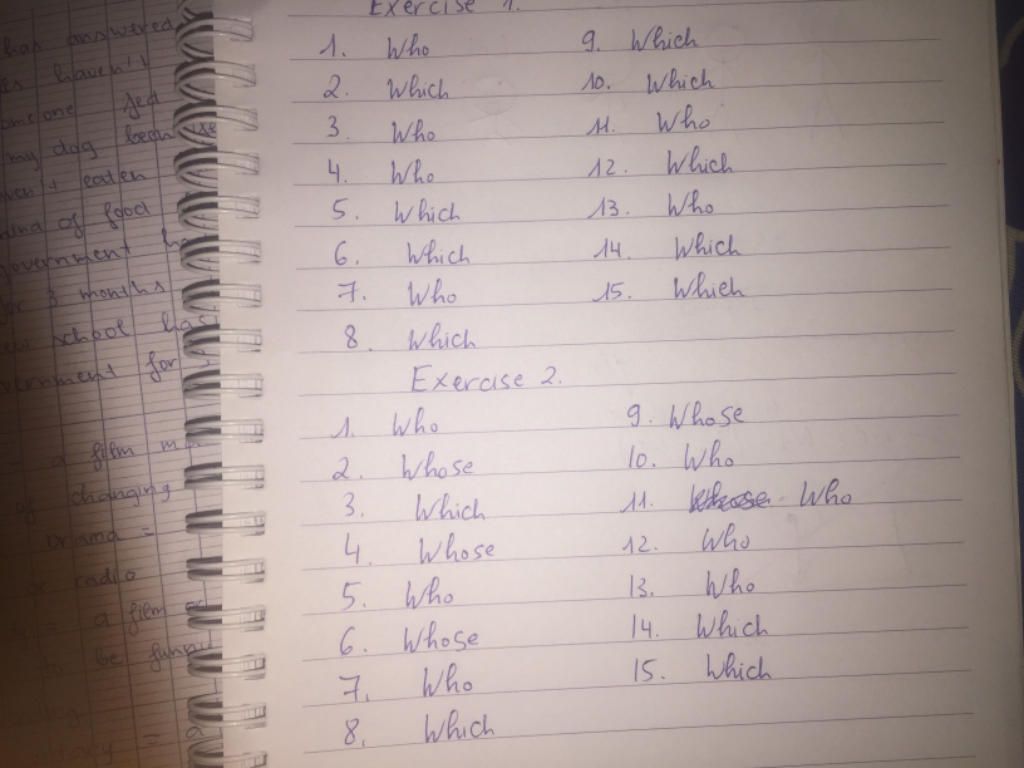 Exercise 1.
1. Who
2. Which
3. Who
4. Who
5. Which
6. Which
7. Who
8. Which
9. Which
10. Which
11. Who
12. Which
13. Who
14. Which
15. Which
Exercise 2.
1. Who
2. Whose
3. Which
4. Whose
5. Who
6. Whose
7. Who
8. Which
9. Whose
10. Who
11. Who
12. Who
13. Who
14. Which
15. Which
has answered
haven't
someone fed
my dog
eaten
kind of food
government
for 3 months
school
government for
a film
of changing
Drama =
radio
= a film
to be funny